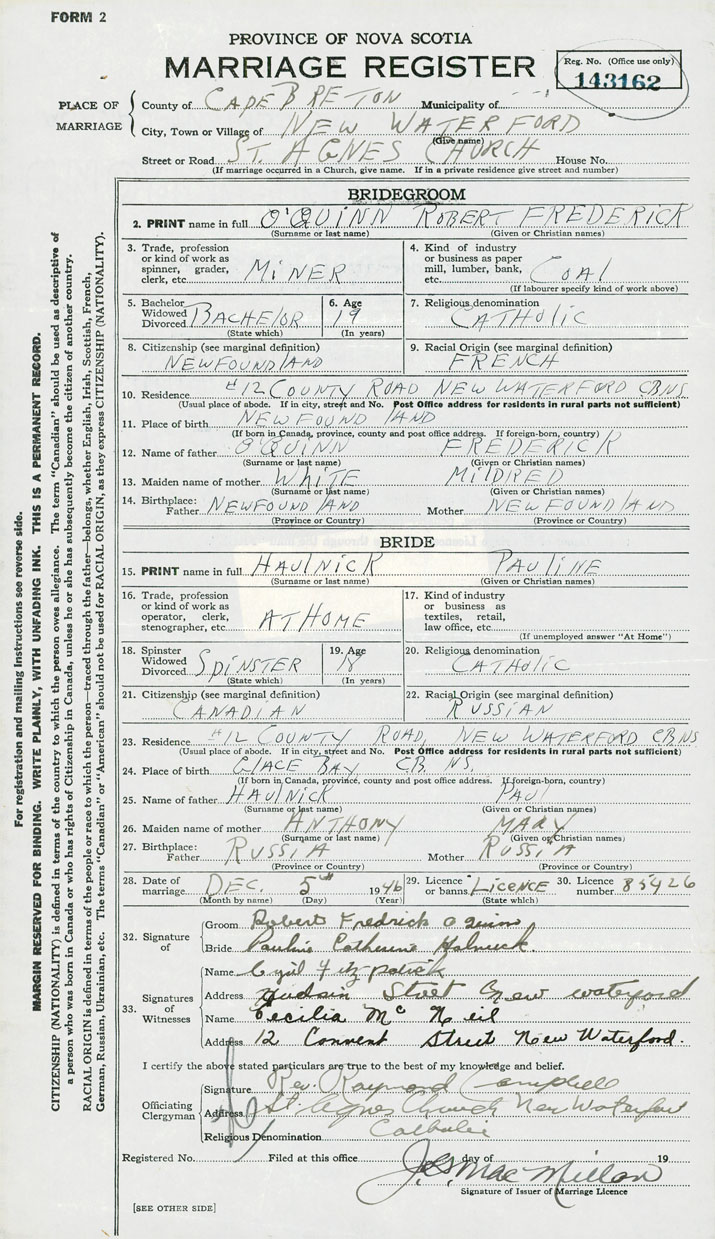 FORM 2
PROVINCE OF NOVA SCOTIA
MARRIAGE REGISTER
Reg. No. (Office use only)
143162
PLACE OF MARRIAGE
County of CAPE BRETON Municipality of
City, Town or Village of NEW WATERFORD
(Give name)
Street or Road ST. AGNES CHURCH House No.
(If marriage occurred in a Church, give name. If in a private residence give street and number)
BRIDEGROOM
2. PRINT name in full O'QUINN ROBERT FREDERICK
(Surname or last name) (Given or Christian names)
3. Trade, profession or kind of work as spinner, grader, clerk, etc. MINER
4. Kind of industry or business as paper mill, lumber, bank, etc. COAL
(If labourer specify kind of work above)
5. Bachelor Widowed Divorced BACHELOR
(State which)
6. Age 19
(In years)
7. Religious denomination
CATHOLIC
8. Citizenship (see marginal definition)
NEWFOUNDLAND
9. Racial Origin (see marginal definition)
FRENCH
10. Residence #12 COUNTY ROAD NEW WATERFORD CB NS
(Usual place of abode. If in city, street and No. Post Office address for residents in rural parts not sufficient)
11. Place of birth NEWFOUNDLAND
(If born in Canada, province, county and post office address. If foreign-born, country)
12. Name of father O'QUINN FREDERICK
(Surname or last name) (Given or Christian names)
13. Maiden name of mother WHITE MILDRED
(Surname or last name) (Given or Christian names)
14. Birthplace: Father NEWFOUNDLAND Mother NEWFOUNDLAND
(Province or Country) (Province or Country)
BRIDE
15. PRINT name in full HAULNICK PAULINE
(Surname or last name) (Given or Christian names)
16. Trade, profession or kind of work as operator, clerk, stenographer, etc. AT HOME
17. Kind of industry or business as textiles, retail, law office, etc.
(If unemployed answer "At Home")
18. Spinster Widowed Divorced SPINSTER
(State which)
19. Age 18
(In years)
20. Religious denomination
CATHOLIC
21. Citizenship (see marginal definition)
CANADIAN
22. Racial Origin (see marginal definition)
RUSSIAN
23. Residence #12 COUNTY ROAD, NEW WATERFORD CB NS
(Usual place of abode. If in city, street and No. Post Office address for residents in rural parts not sufficient)
24. Place of birth GLACE BAY CB NS.
(If born in Canada, province, county and post office address. If foreign-born, country)
25. Name of father HAULNICK PAUL
(Surname or last name) (Given or Christian names)
26. Maiden name of mother ANTHONY MARY
(Surname or last name) (Given or Christian names)
27. Birthplace: Father RUSSIA Mother RUSSIA
(Province or Country) (Province or Country)
28. Date of marriage DEC. 5th 1946
(Month by name) (Day) (Year)
29. Licence or banns LICENCE
(State which)
30. Licence number 85426
32. Signature of
Groom Robert Fredrick O Quinn
Bride Pauline Catherine Holnuck.
33. Signatures of Witnesses
Name Cyril Fitzpatrick
Address Hudson Street New Waterford
Name Cecilia Mc Neil
Address 12 Convent Street New Waterford.
I certify the above stated particulars are true to the best of my knowledge and belief.
Officiating Clergyman
Signature Rev. Raymond Campbell
Address St. Agnes Church New Waterford
Religious Denomination Catholic
Registered No. Filed at this office day of 19
J. S. MacMillan
Signature of Issuer of Marriage Licence
[SEE OTHER SIDE]
For registration and mailing instructions see reverse side.
MARGIN RESERVED FOR BINDING. WRITE PLAINLY, WITH UNFADING INK. THIS IS A PERMANENT RECORD.
CITIZENSHIP (NATIONALITY) is defined in terms of the country to which the person owes allegiance. The term "Canadian" should be used as descriptive of
a person who was born in Canada or who has rights of Citizenship in Canada, unless he or she has subsequently become the citizen of another country.
RACIAL ORIGIN is defined in terms of the people or race to which the person—traced through the father—belongs, whether English, Irish, Scottish, French,
German, Russian, Ukrainian, etc. The terms "Canadian" or "American" should not be used for RACIAL ORIGIN, as they express CITIZENSHIP (NATIONALITY).